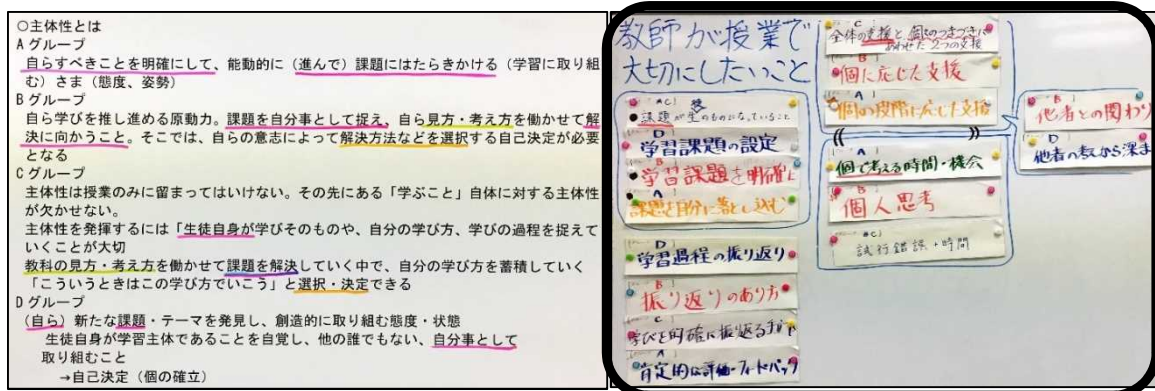 ○主体性とは
Aグループ
自らすべきことを明確にして、能動的に（進んで）課題にはたらきかける（学習に取り組
む）さま（態度、姿勢）
Bグループ
自ら学びを推し進める原動力。課題を自分事として捉え、自ら見方・考え方を働かせて解
決に向かうこと。そこでは、自らの意志によって解決方法などを選択する自己決定が必要
となる
Cグループ
主体性は授業のみに留まってはいけない。その先にある「学ぶこと」自体に対する主体性
が欠かせない。
主体性を発揮するには「生徒自身が学びそのものや、自分の学び方、学びの過程を捉えて
いくことが大切
教科の見方・考え方を働かせて課題を解決していく中で、自分の学び方を蓄積していく
「こういうときはこの学び方でいこう」と選択・決定できる
Dグループ
（自ら）新たな課題・テーマを発見し、創造的に取り組む態度・状態
生徒自身が学習主体であることを自覚し、他の誰でもない、自分事として
取り組むこと
→自己決定（個の確立）
教師が授業で
大切にしたいこと
C
課題が生のものになっていること
D
学習課題の設定
B
学習課題を明確に
A
課題を自分に落とし込む
D
学習過程の振り返り
B
振り返りのあり方
C
学びを明確に振返る手だて
A
肯定的な評価・フィードバック
C
全体の支援と個のつまづきに
あわせた2つの支援
B
個に応じた支援
A
個の段階に応じた支援
A
個で考える時間・機会
B
個人思考
C
試行錯誤+時間
B
他者との関わり
D
他者の考えから深ま